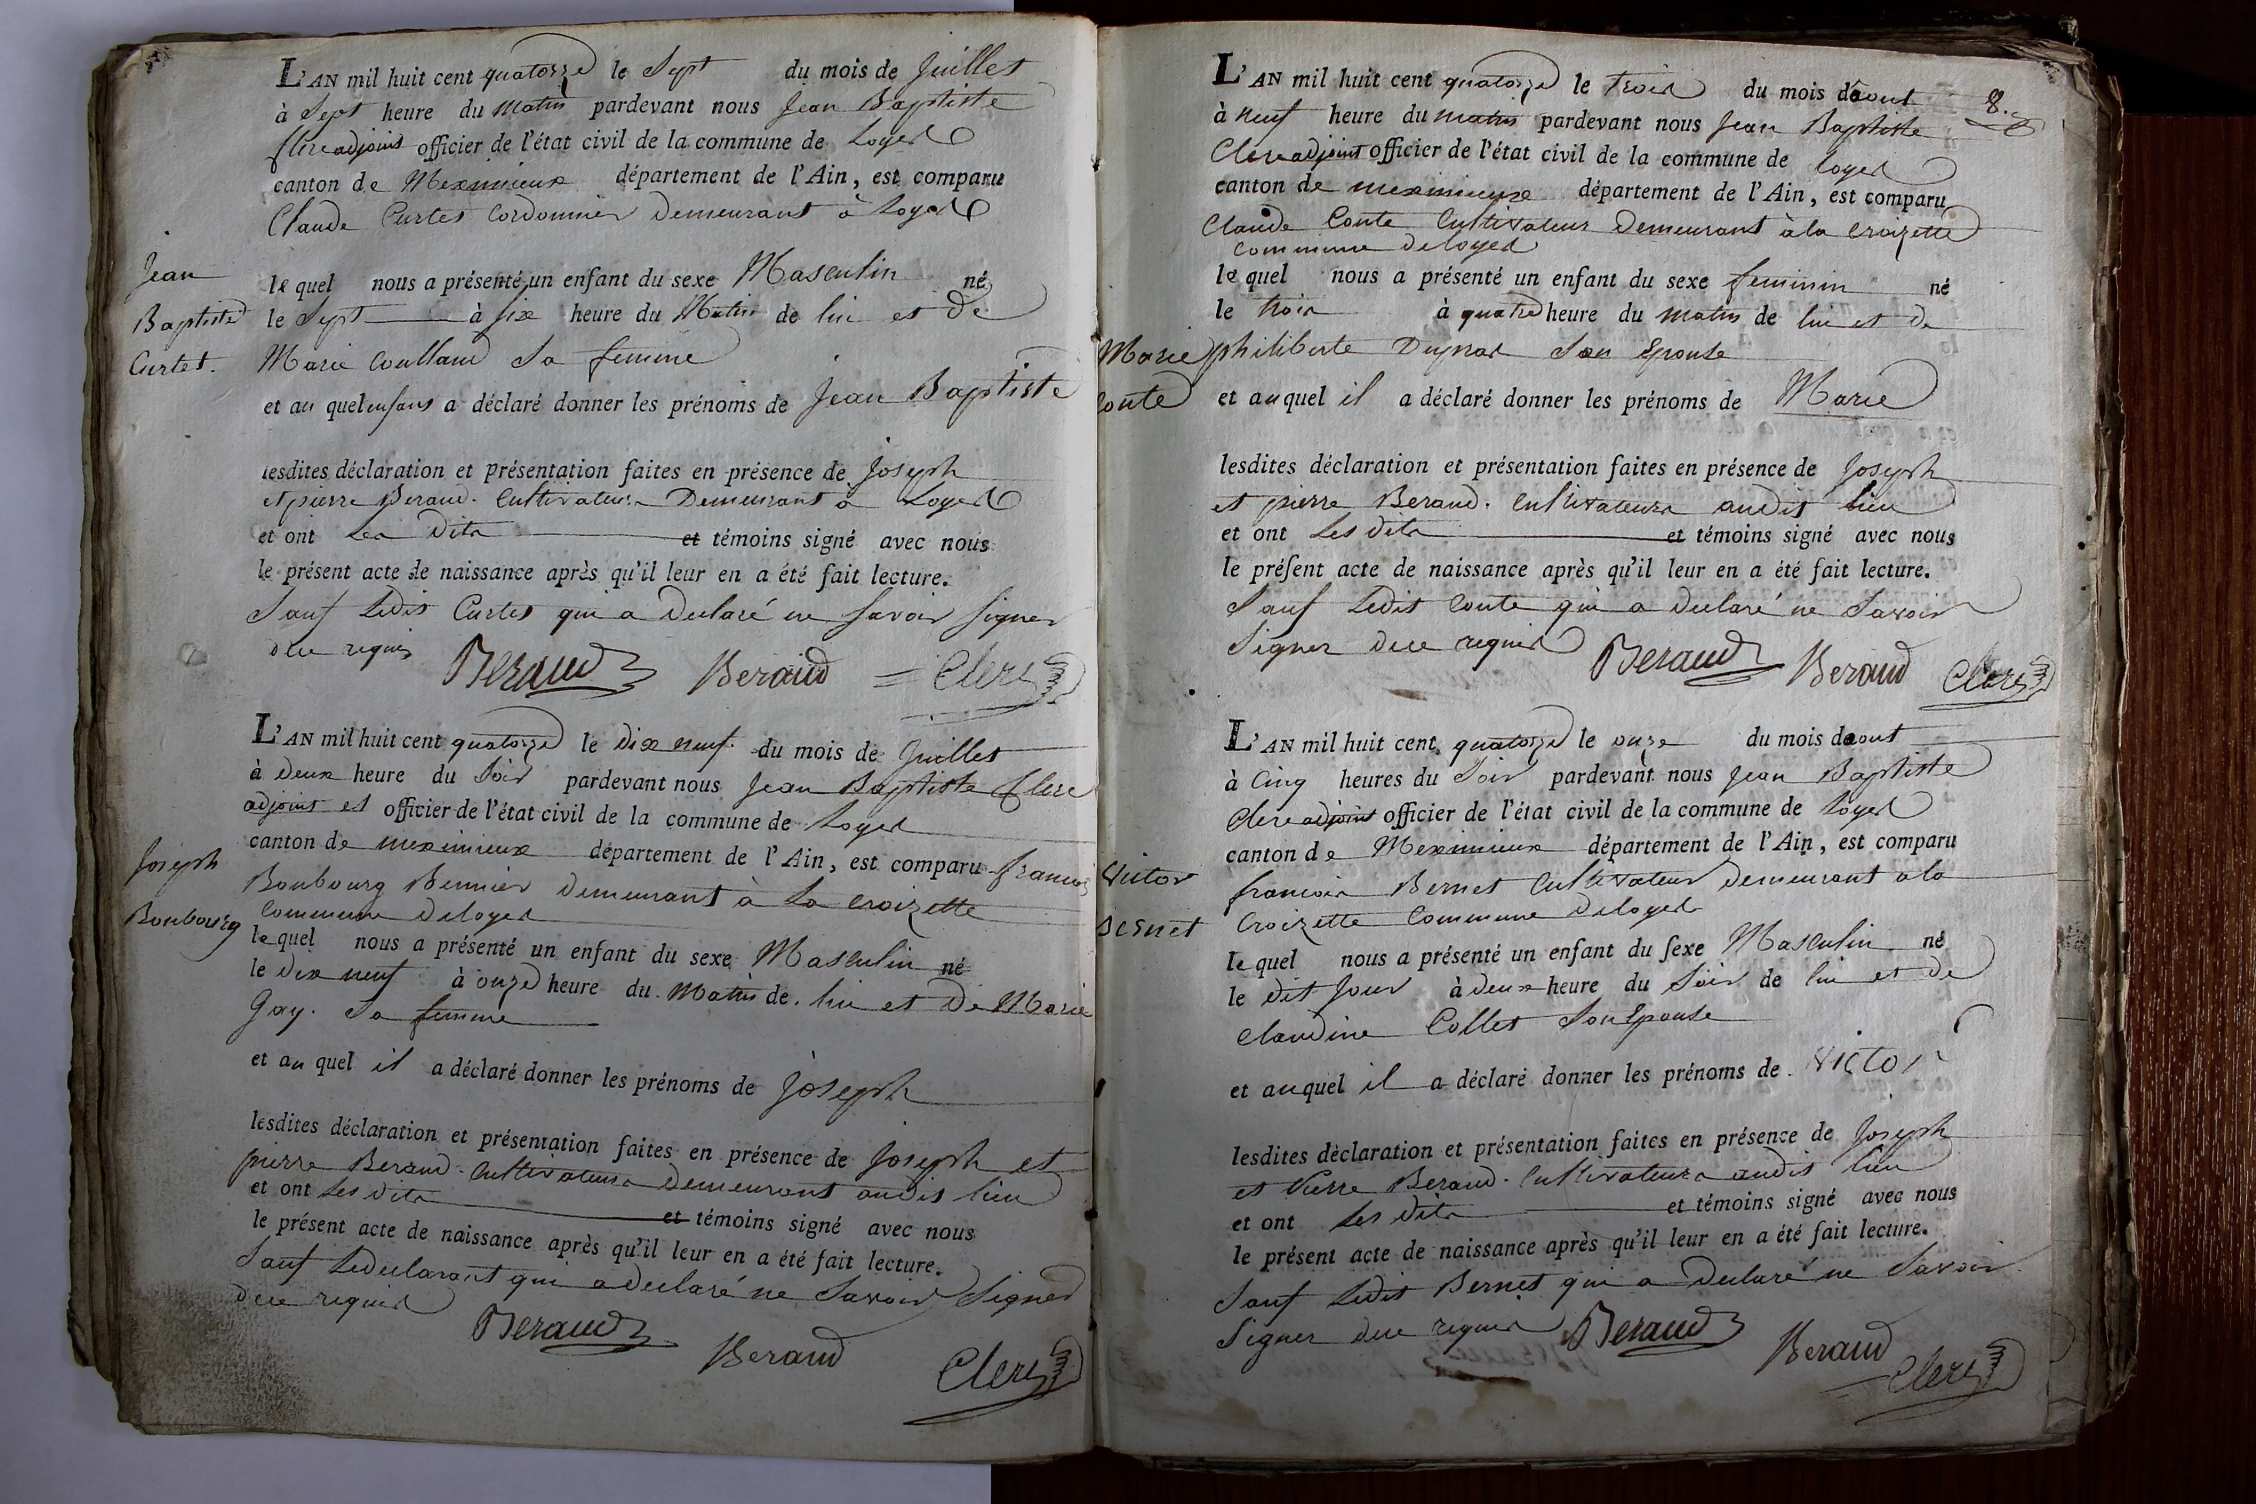 L'AN mil huit cent quatorze le Sept du mois de Juillet
à Sept heure du matin pardevant nous Jean Baptiste
Clere adjoint officier de l'état civil de la commune de Loyes
canton de Meximieux département de l'Ain, est comparu
Claude Curtet Cordonnier Demeurant à Loyes
Jean
Baptiste
Curtet.
le quel nous a présenté un enfant du sexe Masculin né
le Sept à Six heure du Matin de lui et de
Marie Coullaud Sa femme
et au quel enfans a déclaré donner les prénoms de Jean Baptiste
lesdites déclaration et présentation faites en présence de Joseph
et pierre Beraud. Cultivateurs Demeurant à Loyes
et ont Les Dits et témoins signé avec nous
le présent acte de naissance après qu'il leur en a été fait lecture.
Sauf Ledit Curtet qui a Declaré ne Savoir Signer
dece requis
Beraud Beraud Clere
L'AN mil huit cent quatorze le dix neuf du mois de Juillet
à deux heure du Soir pardevant nous Jean Baptiste Clere
adjoint et officier de l'état civil de la commune de Loyes
canton de meximieux département de l'Ain, est comparu francois
Bonbourg Bennier demeurant à La Croizette
Commune deloyes
Joseph
Bonbourg
le quel nous a présenté un enfant du sexe Masculin né
le dix neuf à onze heure du Matin de lui et De Marie
Gay. Sa femme
et au quel il a déclaré donner les prénoms de Joseph
lesdites déclaration et présentation faites en présence de Joseph et
pierre Beraud. Cultivateurs demeurant audit lieu
et ont Les dits et témoins signé avec nous
le présent acte de naissance après qu'il leur en a été fait lecture.
Sauf Ledeclarant qui a declaré ne Savoir Signer
dece requis
Beraud Beraud Clere
8.
L'AN mil huit cent quatorze le trois du mois daout
à neuf heure du matin pardevant nous Jean Baptiste
Clere adjoint officier de l'état civil de la commune de loyes
canton de meximieux département de l'Ain, est comparu
Claude Conte Cultivateur Demeurant à la Croizette
Commune deloyes
le quel nous a présenté un enfant du sexe feminin né
le trois à quatre heure du matin de lui et de
philiberte Son Epouse
Marie
Conte
et au quel il a déclaré donner les prénoms de Marie
lesdites déclaration et présentation faites en présence de Joseph
et pierre Beraud. Cultivateurs audit lieu
et ont Les dits et témoins signé avec nous
le présent acte de naissance après qu'il leur en a été fait lecture.
Sauf Ledit Conte qui a declaré ne Savoir
Signer dece requis
Beraud Beraud Clere
L'AN mil huit cent quatorze le onze du mois daout
à Cinq heures du Soir pardevant nous Jean Baptiste
Clere adjoint officier de l'état civil de la commune de Loyes
canton de Meximieux département de l'Ain, est comparu
francois Bernet Cultivateur demeurant a la
Croizette Commune deloyes
Victor
Bernet
le quel nous a présenté un enfant du sexe Masculin né
le dit Jour à deux heure du Soir de lui et de
Claudine Collet Son Epouse
et au quel il a déclaré donner les prénoms de Victor
lesdites déclaration et présentation faites en présence de Joseph
et Pierre Beraud. Cultivateurs audit lieu
et ont Les dits et témoins signé avec nous
le présent acte de naissance après qu'il leur en a été fait lecture.
Sauf Ledit Bernet qui a Declaré ne Savoir
Signer dece requis
Beraud Beraud Clere